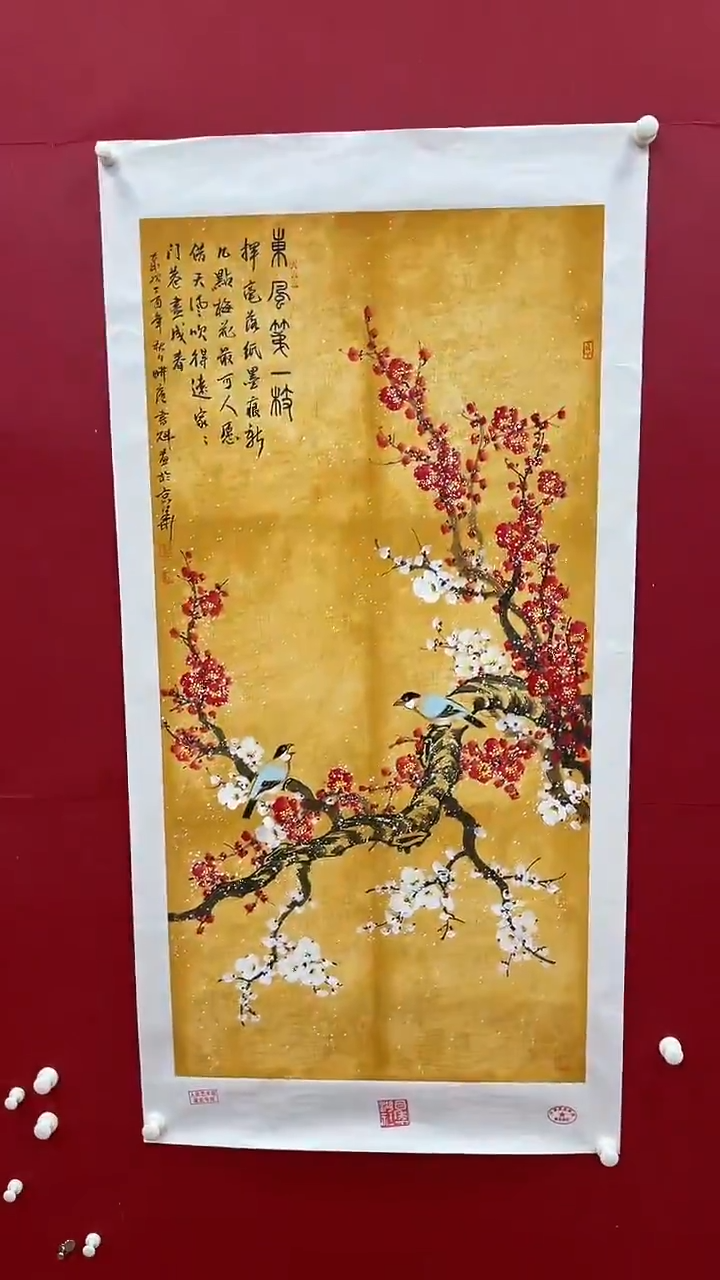 東風第一枝
揮毫落紙墨痕新
几點梅花最可人愿
借天風吹得遠家々
门巷盡成春
歲次丁酉年秋月
畫於京華